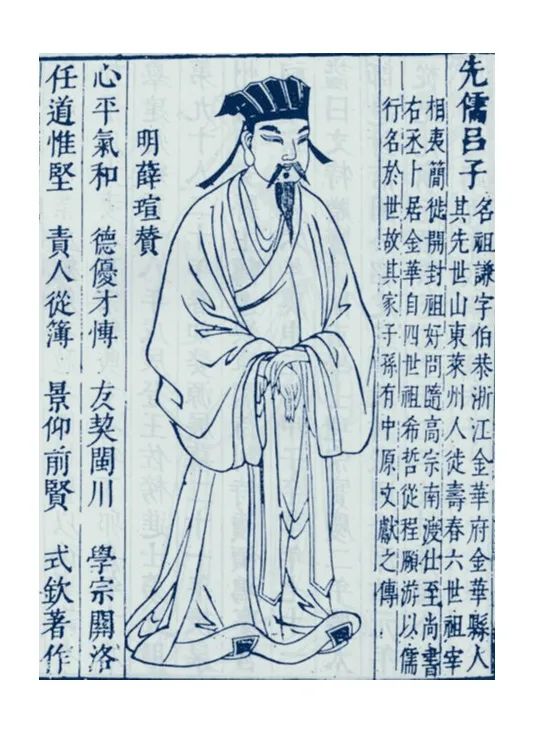 先儒吕子
名祖謙字伯恭浙江金華府金華縣人
其先世山東萊州人徙壽春六世祖宰
相夷簡徙開封祖好問隨高宗南渡仕至尚書
右丞卜居金華自四世祖希哲從程頤游以儒
行名於世故其家子孫有中原文獻之傳
明薛瑄贊
心平氣和 德優才愽 友契閩川 學宗關洛
任道惟堅 責人從簿 景仰前賢 式欽著作